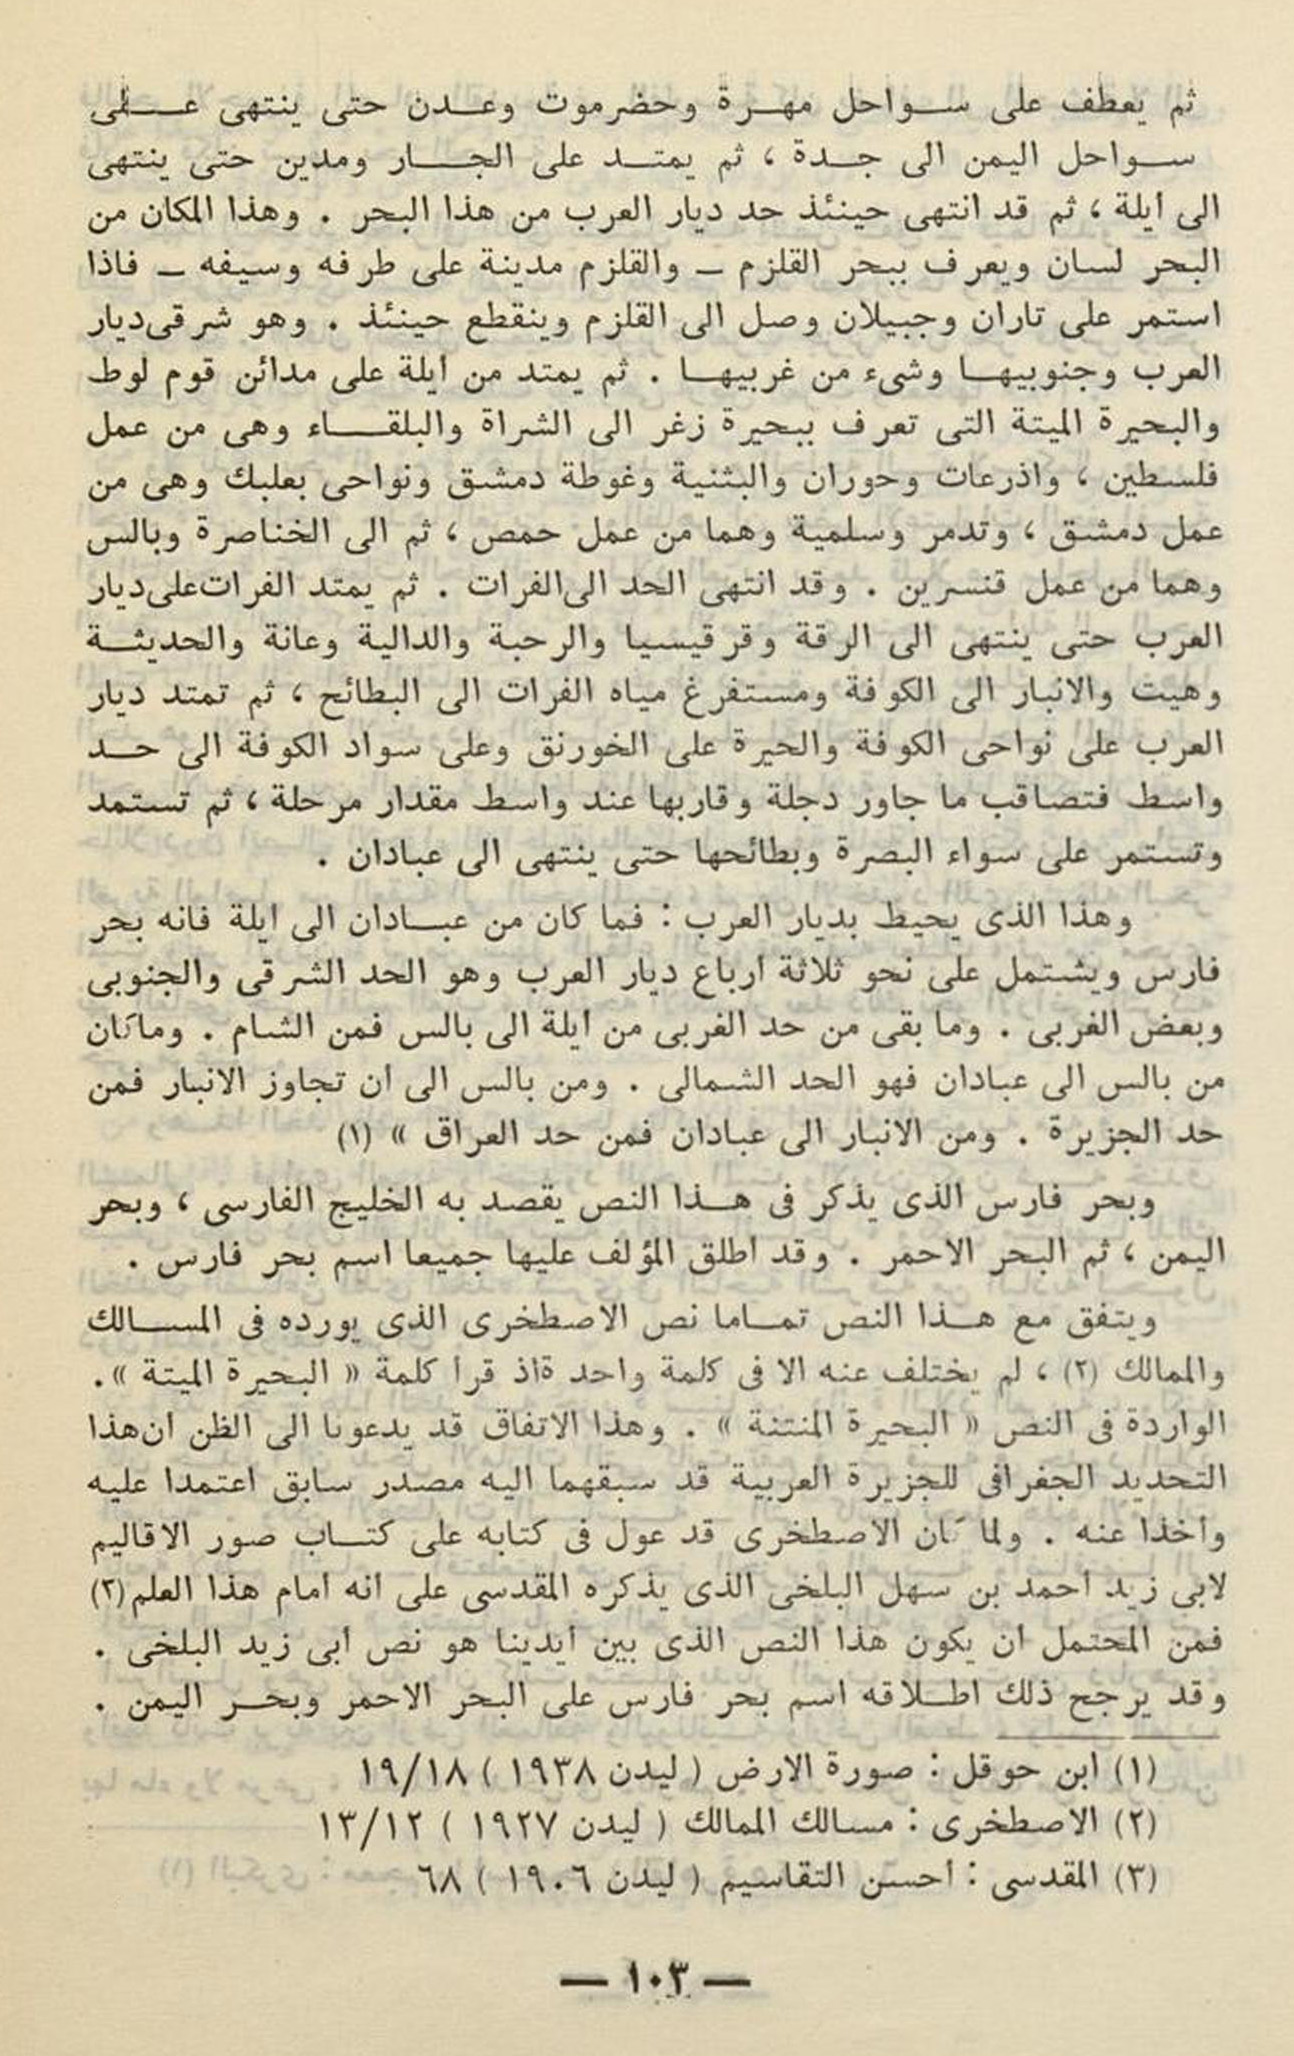 ثم يعطف على سواحل مهرة وحضرموت وعدن حتى ينتهى على
سواحل اليمن الى جدة ، ثم يمتد على الجار ومدين حتى ينتهى
الى أيلة ، ثم قد انتهى حينئذ حد ديار العرب من هذا البحر . وهذا المكان من
البحر لسان ويعرف ببحر القلزم – والقلزم مدينة على طرفه وسيفه – فاذا
استمر على تاران وجبيلان وصل الى القلزم وينقطع حينئذ . وهو شرقى ديار
العرب وجنوبيها وشىء من غربيها . ثم يمتد من أيلة على مدائن قوم لوط
والبحيرة الميتة التى تعرف ببحيرة زغر الى الشراة والبلقاء وهى من عمل
فلسطين ، واذرعات وحوران والبثنية وغوطة دمشق ونواحى بعلبك وهى من
عمل دمشق ، وتدمر وسلمية وهما من عمل حمص ، ثم الى الخناصرة وبالس
وهما من عمل قنسرين . وقد انتهى الحد الى الفرات . ثم يمتد الفرات على ديار
العرب حتى ينتهى الى الرقة وقرقيسيا والرحبة والدالية وعانة والحديثة
وهيت والانبار الى الكوفة ومستفرغ مياه الفرات الى البطائح ، ثم تمتد ديار
العرب على نواحى الكوفة والحيرة على الخورنق وعلى سواد الكوفة الى حد
واسط فتصاقب ما جاور دجلة وقاربها عند واسط مقدار مرحلة ، ثم تستمد
وتستمر على سواء البصرة وبطائحها حتى ينتهى الى عبادان .
وهذا الذى يحيط بديار العرب : فما كان من عبادان الى ايلة فانه بحر
فارس ويشتمل على نحو ثلاثة أرباع ديار العرب وهو الحد الشرقى والجنوبى
وبعض الغربى . وما بقى من حد الغربى من أيلة الى بالس فمن الشام . وماكان
من بالس الى عبادان فهو الحد الشمالى . ومن بالس الى أن تجاوز الانبار فمن
حد الجزيرة . ومن الانبار الى عبادان فمن حد العراق » (١)
وبحر فارس الذى يذكر فى هذا النص يقصد به الخليج الفارسى ، وبحر
اليمن ، ثم البحر الاحمر . وقد أطلق المؤلف عليها جميعا اسم بحر فارس .
ويتفق مع هذا النص تماما نص الاصطخرى الذى يورده فى المسالك
والممالك (٢) ، لم يختلف عنه الا فى كلمة واحد ةاذ قرأ كلمة « البحيرة الميتة » .
الواردة فى النص « البحيرة المنتنة » . وهذا الاتفاق قد يدعونا الى الظن أن هذا
التحديد الجغرافى للجزيرة العربية قد سبقهما اليه مصدر سابق اعتمدا عليه
وأخذا عنه . ولما كان الاصطخرى قد عول فى كتابه على كتاب صور الاقاليم
لابى زيد أحمد بن سهل البلخى الذى يذكره المقدسى على أنه امام هذا العلم (٣)
فمن المحتمل أن يكون هذا النص الذى بين أيدينا هو نص أبى زيد البلخى .
وقد يرجح ذلك اطلاقه اسم بحر فارس على البحر الاحمر وبحر اليمن .
(١) ابن حوقل : صورة الارض ( ليدن ١٩٣٨ ) ١٩/١٨
(٢) الاصطخرى : مسالك الممالك ( ليدن ١٩٢٧ ) ١٣/١٢
(٣) المقدسى : أحسن التقاسيم ( ليدن ١٩٠٦ ) ٦٨
— ١٠٣ —